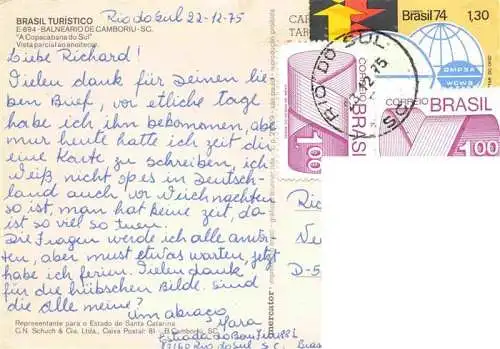 BRASIL TURÍSTICO
E-894 - BALNEARIO DE CAMBORIU - SC.
"A Copacabana do Sul"
Vista parcial ao anoitecer.
Rio do Sul 22-12-75
Liebe Richard!
Vielen dank für Deinen lie
ben Brief, vor etliche tage
habe ich ihn bekommen, aber
nur heute hatte ich zeit dir
eine Karte zu schreiben, ich
weiß nicht ob es in Deutsch-
land auch vor Weichnachten
so ist, man hat keine zeit, da
ist so viel so tuen.
Die Fragen werde ich alle antwor
ten, aber must etwas warten, jetzt
habe ich ferien. Vielen dank
für die hübschen Bilde. Sind
die alle meine?
Um abraço
Mara
Representante para o Estado de Santa Catarina
C.N. Schuch & Cia. Ltda., Caixa Postal: 81 - B. Camboriú, SC.
Estrada do
89160 Rio do Sul S.C. Bras
mercator
Brasil 74 1,30
RIO DO SUL
12 75
SC
CORREIO BRASIL
1,00
CORREIO BRASIL
1,00
R
Ne
D-5